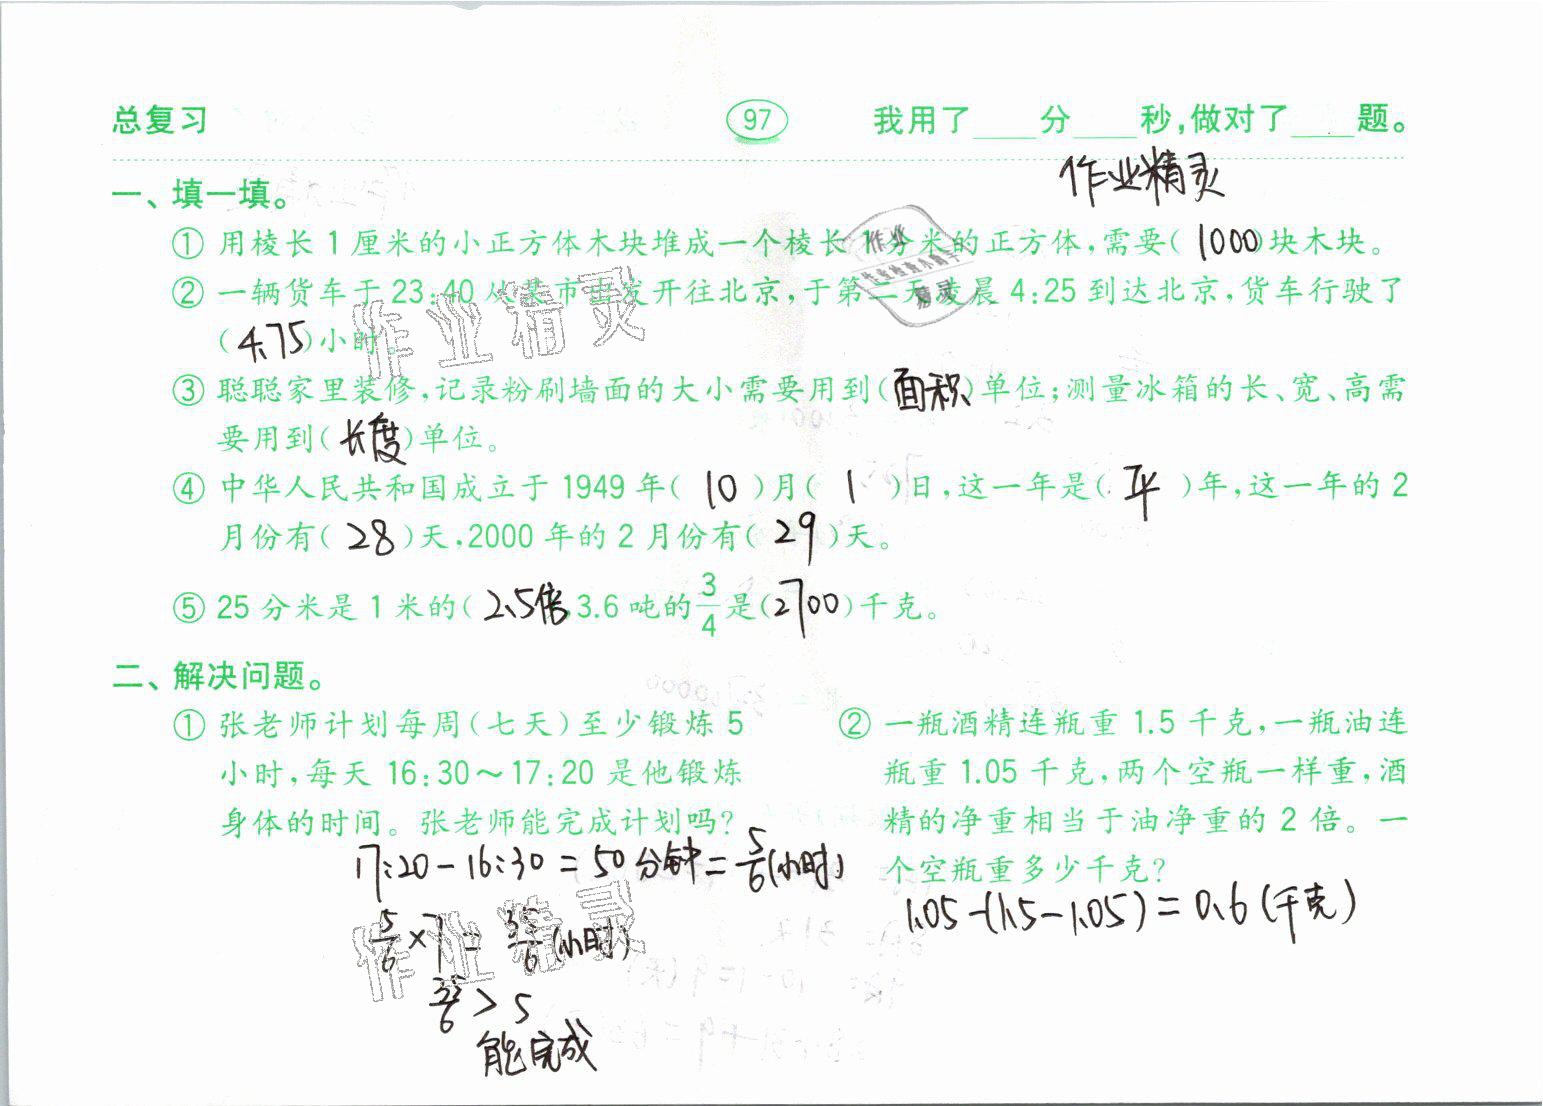 总复习 97 我用了____分____秒,做对了____题。
作业精灵
一、填一填。
① 用棱长1厘米的小正方体木块堆成一个棱长1分米的正方体,需要(1000)块木块。
② 一辆货车于23:40从某市出发开往北京,于第二天凌晨4:25到达北京,货车行驶了
(4.75)小时。
③ 聪聪家里装修,记录粉刷墙面的大小需要用到(面积)单位;测量冰箱的长、宽、高需
要用到(长度)单位。
④ 中华人民共和国成立于1949年(10)月(1)日,这一年是(平)年,这一年的2
月份有(28)天,2000年的2月份有(29)天。
⑤ 25分米是1米的(2.5倍,3.6吨的3/4是(2700)千克。
二、解决问题。
① 张老师计划每周(七天)至少锻炼5
小时,每天16:30~17:20是他锻炼
身体的时间。张老师能完成计划吗?
17:20-16:30=50分钟=5/6(小时)
5/6×7=35/6(小时)
35/6>5
能完成
② 一瓶酒精连瓶重1.5千克,一瓶油连
瓶重1.05千克,两个空瓶一样重,酒
精的净重相当于油净重的2倍。一
个空瓶重多少千克?
1.05-(1.5-1.05)=0.6(千克)
作业精灵
作业精灵
作业
作业检查小助手
精灵